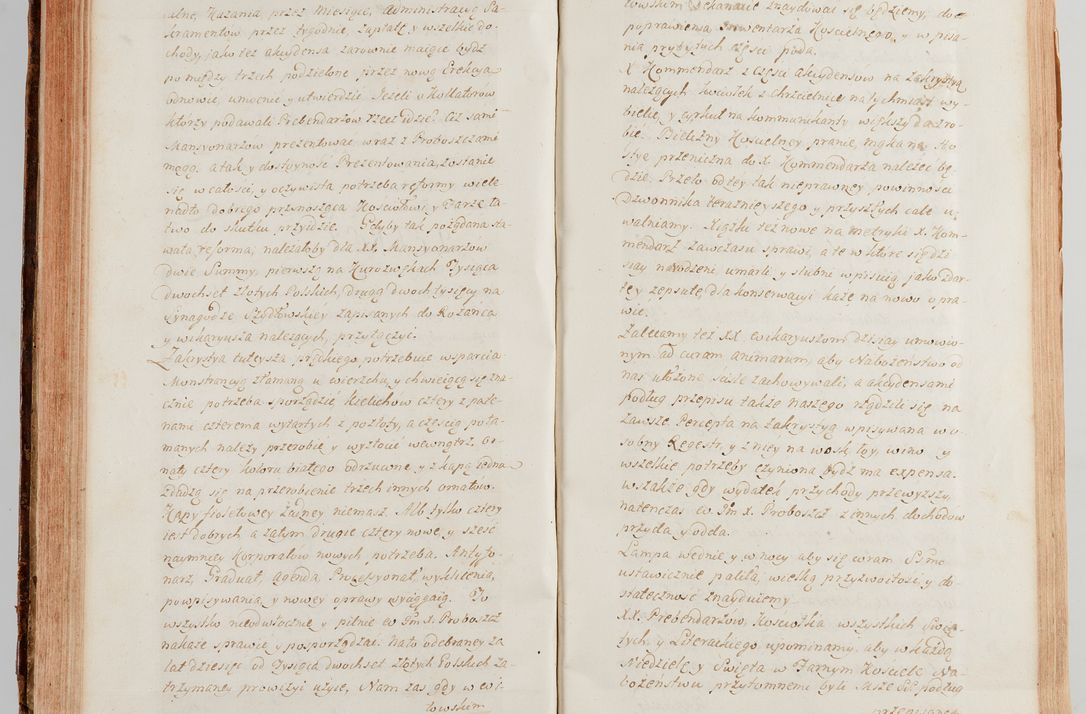 alne, Kazania przez Miesiąc, Administracyę Sa-
kramentow przez tygodnie, Zapłatę y wszelkie do-
chody, jako też akcydensa zarownie maiące bydź
pomiędzy trzech podzielone przez nową Erekcyą
odnowić, umocnić y utwierdzić. Jeżeli o Kollatorow
ktorzy podawali Prebendarzow rzecz idzie? ciż sami
Mansyonarzow prezentować wraz z Proboszczami
mogą. a tak y dostoyność Prezentowania zostanie
się w całości, y oczywista potrzeba reformy wiele
nadto dobrego przynosząca Kosciołowi y Farze ła-
two do skutku przyidzie. Gdyby tak pożądana sta-
wała reforma, należałoby dla XX. Mansyonarzow
dwie Summy, pierwszą na Kurozwękach Tysiąca
dwochset złotych Polskich, drugą dwoch tysięcy na
Synagodze Szydłowskiey zapisanych do Rożańca
y wikaryusza należących, przyłączyć.
Zakrystya tuteysza prędkiego potrzebuie wsparcia.
Monstrancyą złamaną u wierzchu y chwieiącą się zna-
cznie potrzeba sporządzić Kielichow cztery z pate-
nami czterema wytartych z pozłoty, a częścią poła-
manych należy przerobić y wyzłocić wewnątrz. Or-
naty cztery koloru białego odrzucone y z kapą iedną
zdadzą się na przerobienie trzech innych ornatow.
Kapy fioletowey żadney niemasz. Alb tylko cztery
iest dobrych a zatym drugie cztery nowe y sześć
naymniey Korporałow nowych potrzeba. Antyfo-
narz, Graduał, agenda, Processyonał, wyklelenia,
powpisywania y nowey oprawy wyciągaią. To
wszystko nieodwłocznie y pilnie W Jm X. Proboszcz
nakaże sprawić y posporządzać. Na to odebraney za
lat dziesięć od Tysiąca dwochset złotych Polskich za-
trzymaney prowizyi użyie, Nam zaś gdy w Wi-
towskim
towskim Dekanacie znaydować się będziemy, do
poprawienia Inwentarza Koscielnego, y w pisa-
nia przybyłych rzeczi poda.
X Kommendarz z części akcydensow na Zakrystyą
należących kociołek z Chrzcielnicę natychmiast wy-
bielić, y cyrkuł na kommunikanty większy da zro-
bić. Bielizny Koscielney pranie, mąka na Ho-
stye przeniczna do X. Kommendarza należeć bę-
dzie. Przeto od tey tak nieprawney powinności
Dzwonnika teraznieyszego y przyszłych całe u-
walniamy. Xiążki też nowe na metryki X. Kom-
mendarz zawczasu sprawi, a te w ktore się dzi-
siay narodzeni umarli y slubni wpisuią jako zdar-
te y zepsute, dla konserwacyi każe na nowo opra-
wić.
Zalecamy też XX. Wikaryuszom dzisiay umowio-
nym ad curam animarum, aby Nabożeństwo od
nas ułożone ściśle zachowywali, a akcydensami
podług przepisu także naszego rządzili się na
zawsze. Percepta na Zakrystyą wpisywana w o-
sobny Regestr, y z niey na wosk łoy, wino y
wszelkie potrzeby czyniona bydź ma expensa.
wszakże gdy wydatek przychody przewyższy,
natenczas W Jm X. Proboszcz z innych dochodow
przyda y odda.
Lampa wednie y w nocy aby się coram SSmo
ustawicznie paliła, wielką przyzwoitość y do-
stateczność znayduiemy.
XX. Prebendarzow, Kosciołka wszystkich Swię-
tych, y Literackiego upominamy, aby w każdą
Niedzielę y Swięta w Farnym Kosciele Na-
bożeństwu przytomnemi byli. Msze SSte podług
przepisanego